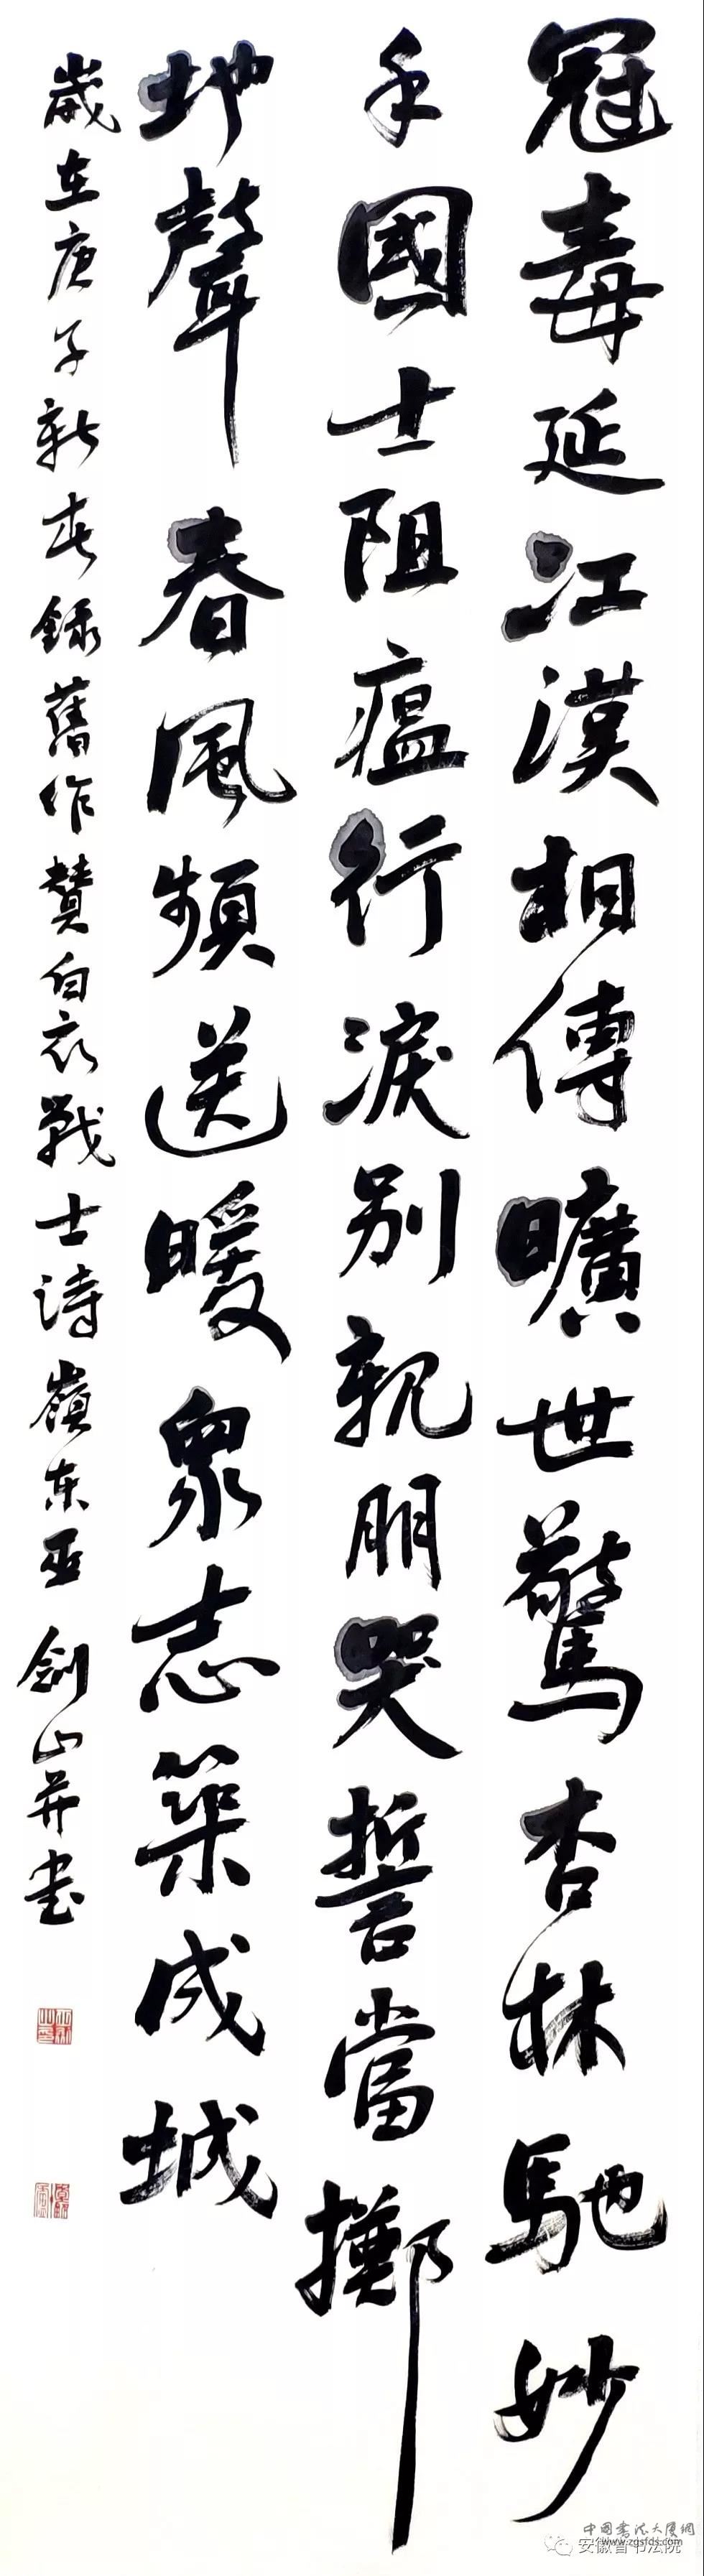 冠毒延江漢相傳曠世驚杏林馳妙
手國士阻瘟行淚别親朋哭誓當擲
地聲春風頻送暖眾志築成城
歲在庚子新春録舊作贊白衣戰士诗嶺东巫劍山并书
中國书法大厦網
www.zgsfds.com
安徽省书法院